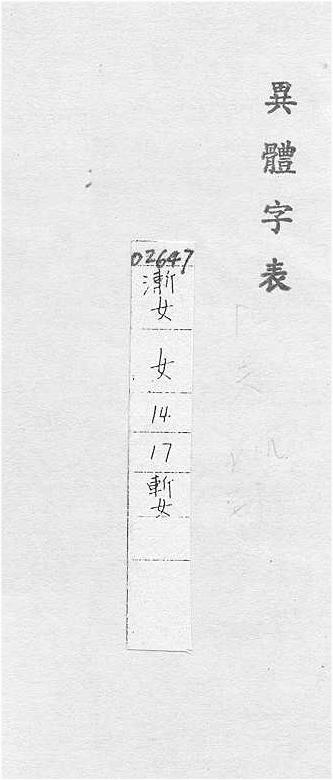 異體字表
02647
漸女
女
14
17
斬女